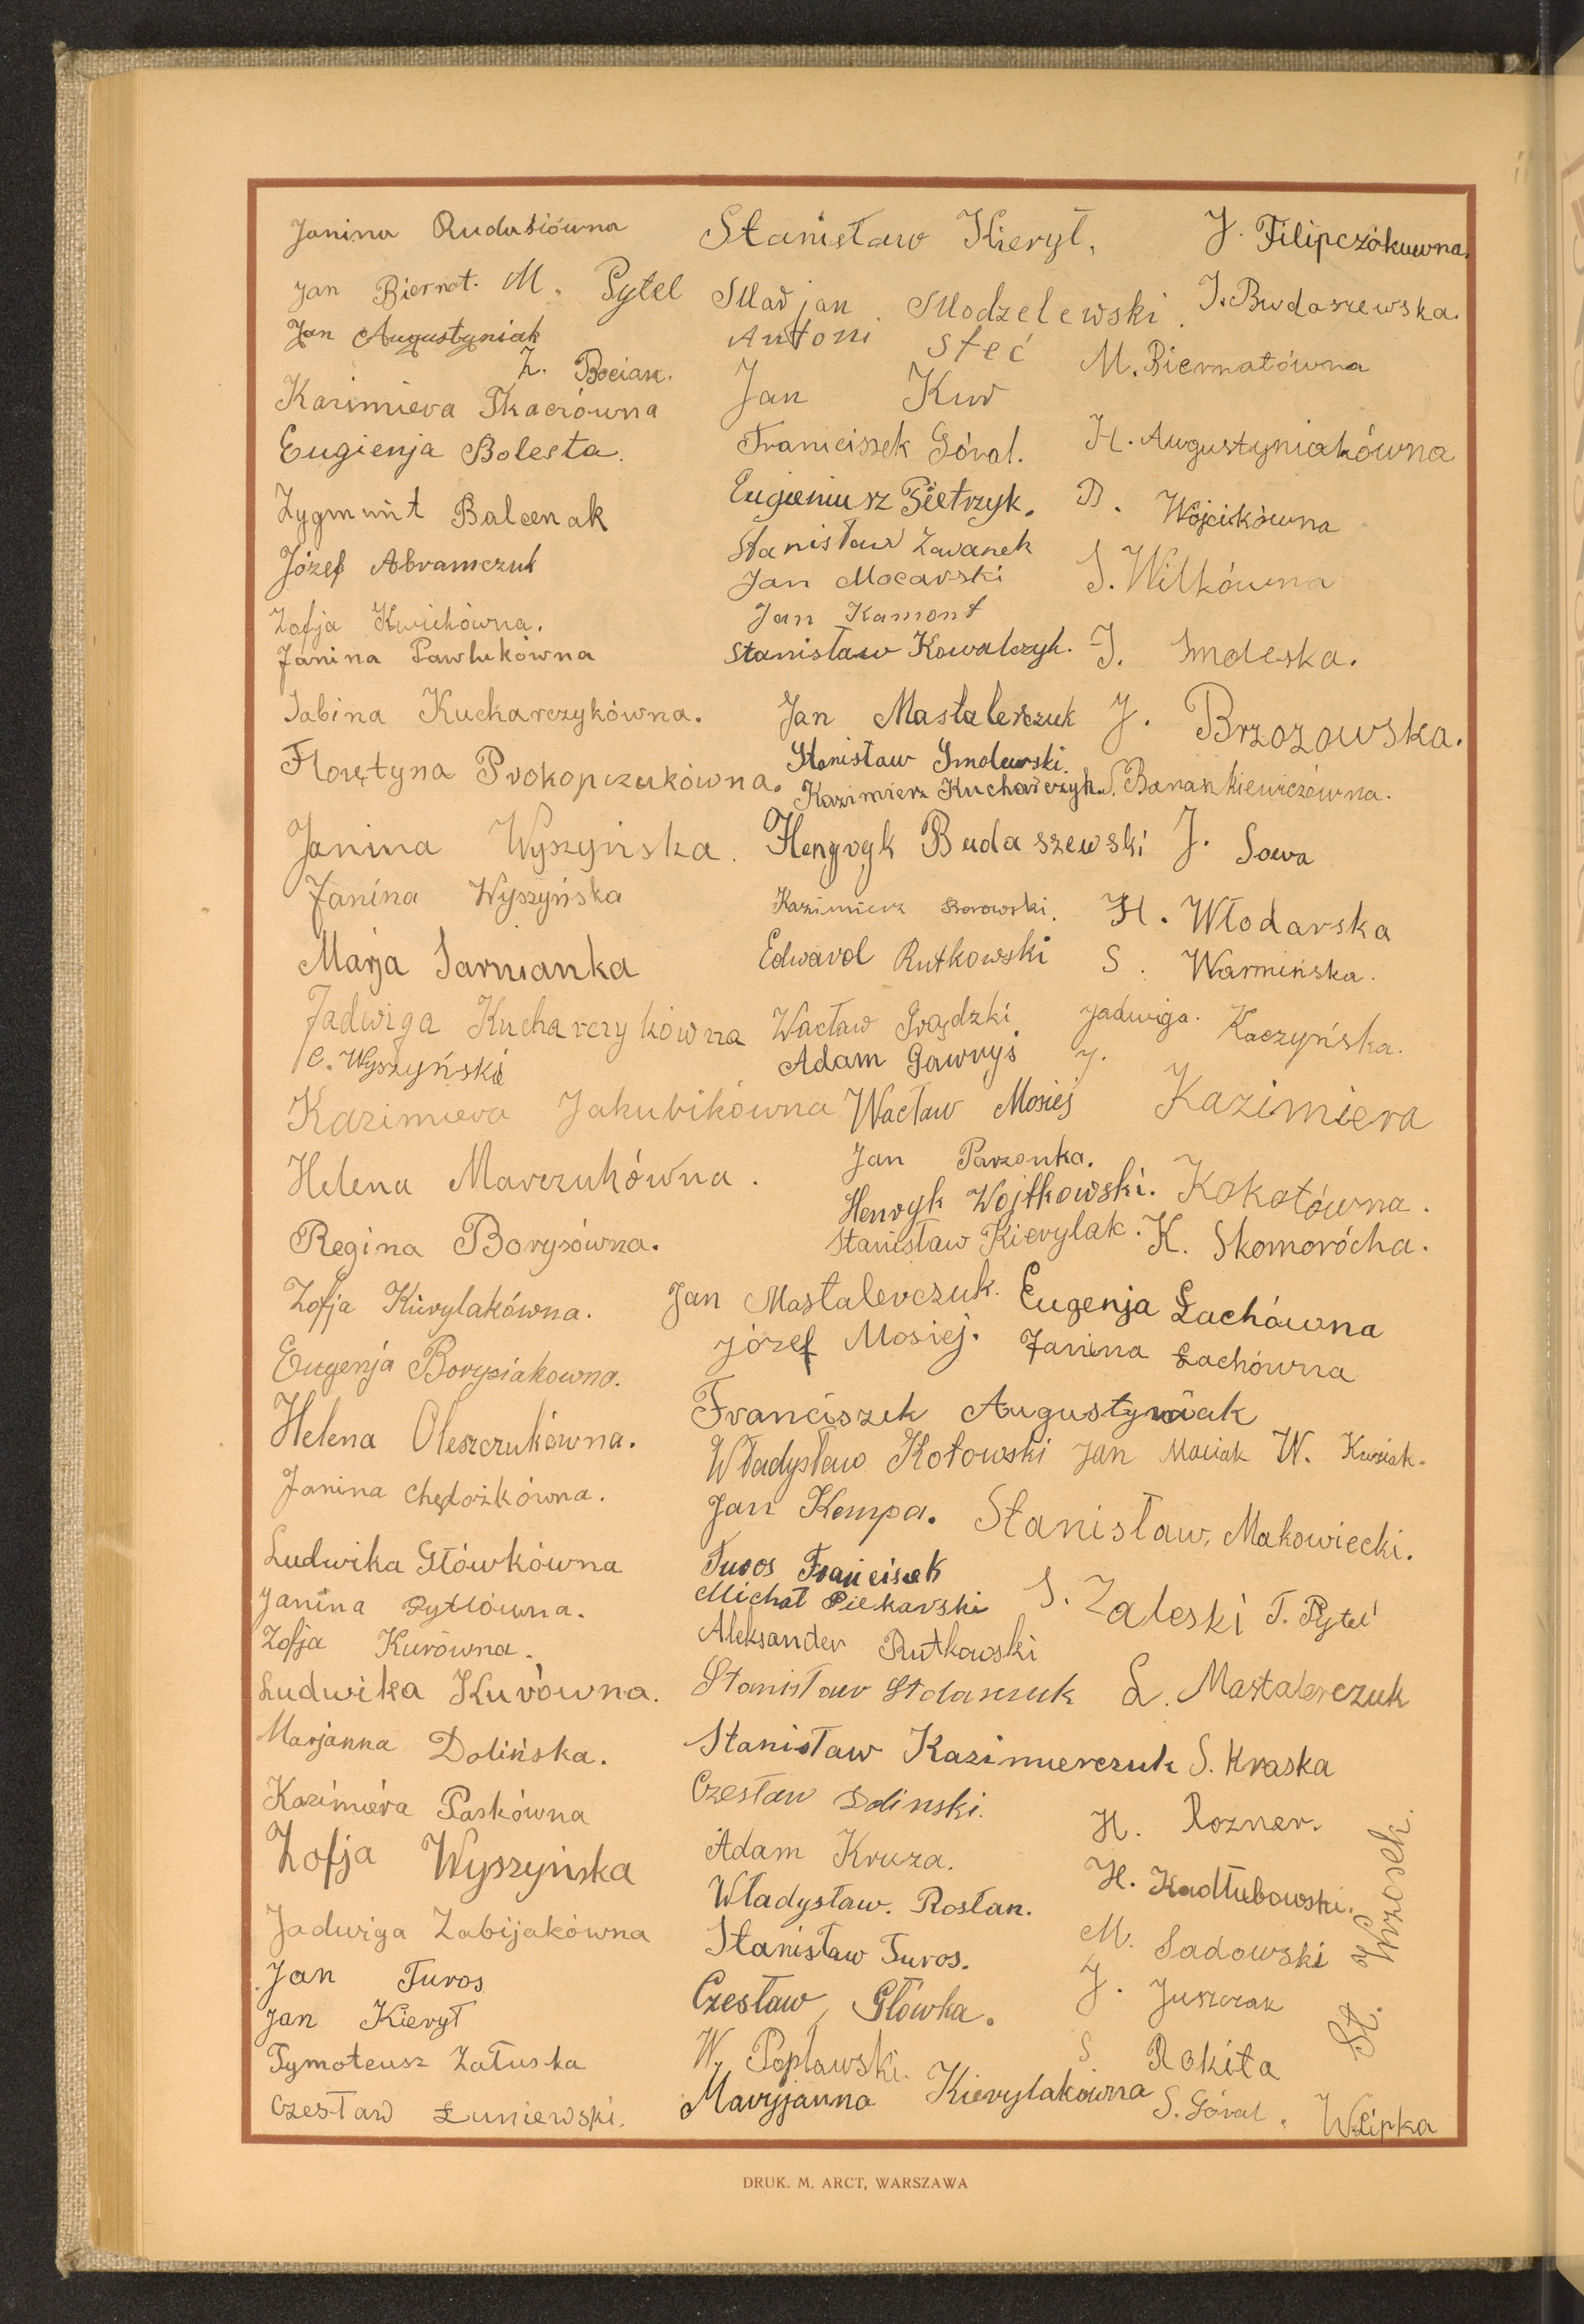 Janina Rudasiówna
Jan Biernat. M. Pytel
Jan Augustyniak
Z. Bocian.
Kazimiera Tkaczówna
Eugienja Bolesta.
Zygmunt Balcenak
Józef Abramczuk
Zofja Kwiekówna.
Janina Pawlukówna
Sabina Kucharczykówna.
Florętyna Prokopczukówna.
Janina Wyszyńska.
Janina Wyszyńska
Marja Sarnianka
Jadwiga Kucharczykówna
C. Wyszyński
Kazimiera Jakubikówna
Helena Marczukówna.
Regina Borysówna.
Zofja Kierylakówna.
Eugenja Borysiakowna.
Helena Oleszczukówna.
Janina Chędożkówna.
Ludwika Główkówna
Janina Pytlówna.
Zofja Kurówna.
Ludwika Kurówna.
Marjanna Dolińska.
Kazimiéra Paskówna
Zofja Wyszyńska
Jadwiga Zabijakówna
Jan Turos
Jan Kierył
Tymoteusz Załuska
Czesław Łuniewski.
Stanisław Kierył.
Marjan Modzelewski.
Antoni Steć
Jan Kur
Franciszek Góral.
Eugieniusz Pietrzyk.
Stanisław Zaranek
Jan Mocarski
Jan Kamont
Stanisław Kowalczyk.
Jan Mastalerczuk
Stanisław Smolewski.
Kazimierz Kucharczyk.
Henryryk Budaszewski
Kazimierz Borowski.
Edward Rutkowski
Wacław Grądzki
Adam Gawryś
Wacław Mosiej
Jan Parzonka.
Henryk Wojtkowski.
Stanisław Kierylak.
Jan Mastalerczuk.
Józef Mosiej.
Franciszek Augustyniak
Władysław Kotowski Jan Maciak W. Kusiak.
Jan Kempa. Stanisław, Makowiecki.
Turos Franciszek
Michał Piekarski
Aleksander Rutkowski
Stanisław
Stanisław Kazimierczuk
Czesław Dolinski.
Adam Kruza.
Władysław. Rosłan.
Stanisław Turos.
Czesław, Główka.
W. Popławski.
Maryjanna Kierylakówna
J. Filipczókuwna.
J. Budaszewska.
M. Biernatówna
H. Augustyniakówna
B. Wójcikówna
S. Wilkówna
J. Smoleska.
J. Brzozowska.
S. Banaszkiewiczówna.
J. Sowa
H. Włodarska
S. Warmińska.
Jadwiga. Kaczyńska.
J.
Kazimiera
Kokotówna.
K. Skomorócha.
Eugenja Łachówna
Janina Łachówna
S. Zaleski T. Pytel
L. Mastalerczuk
S. Kraska
H. Rozner.
H. Kadłubowski.
M. Sadowski
J. Juszczak
S. Rokita
S. Góral.
W Lipka
St. Wrzosek.
DRUK. M. ARCT, WARSZAWA